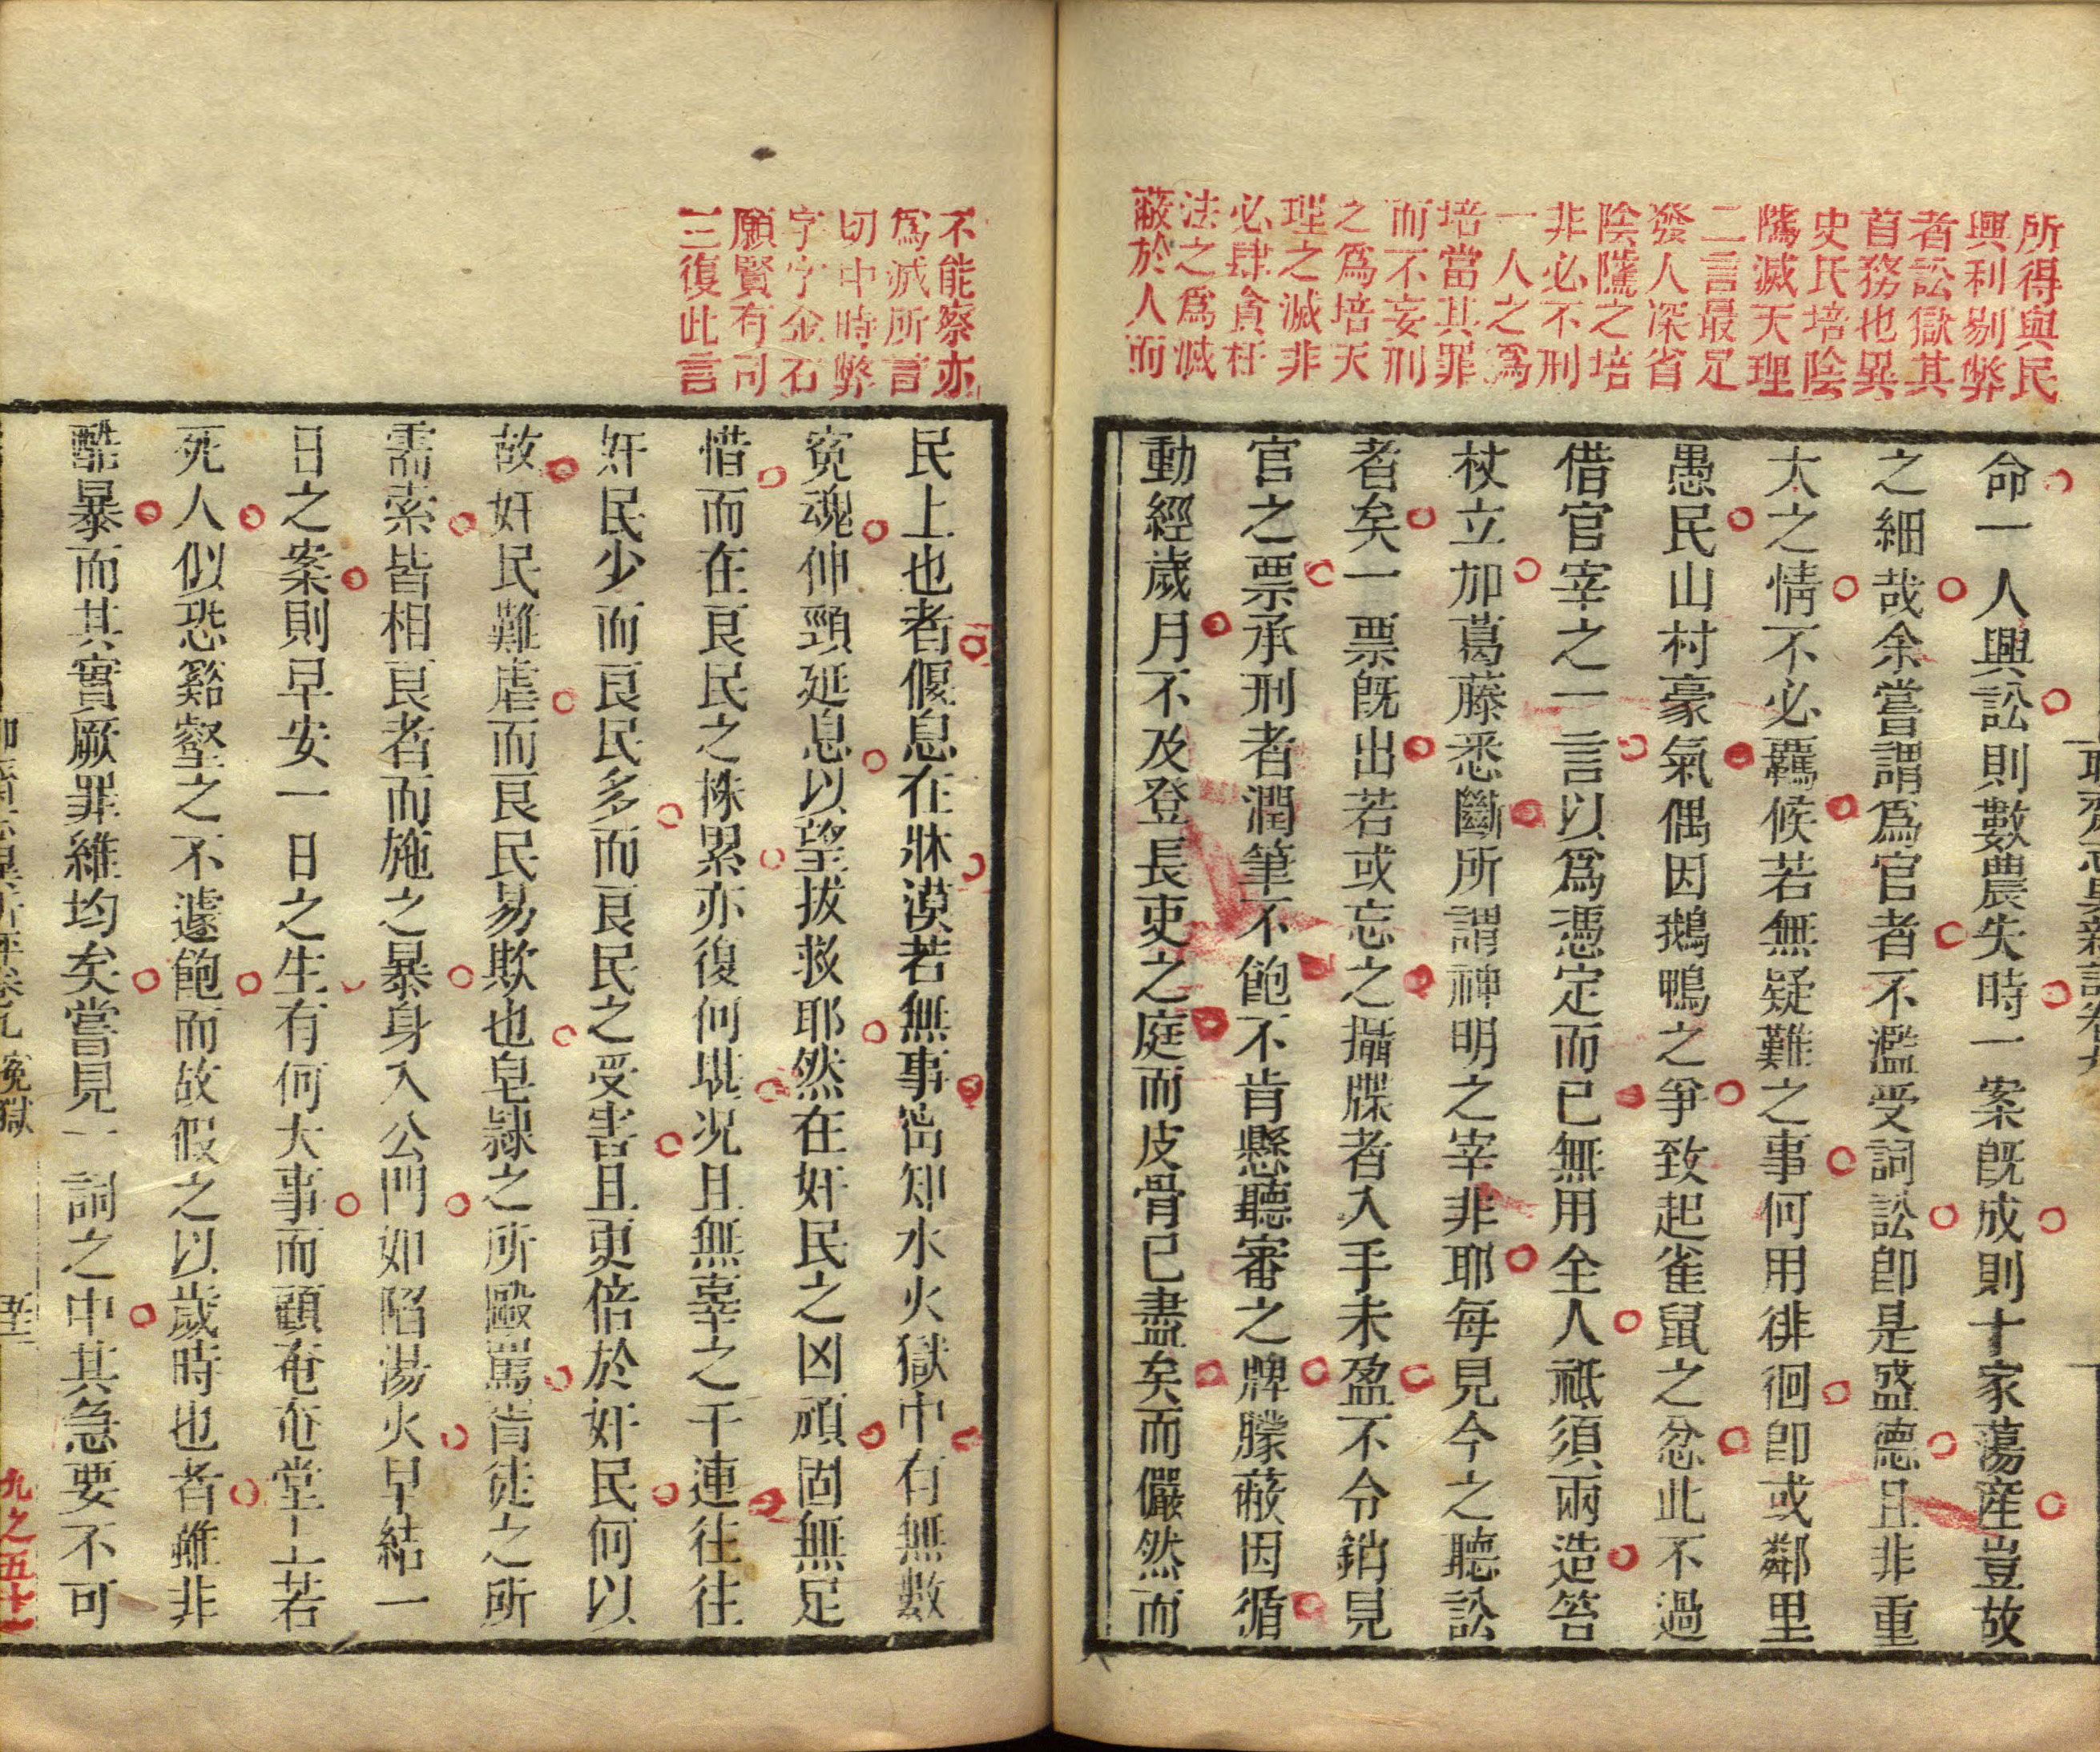 所得與民
興利剔弊
者訟獄其
首務也異
史氏培陰
隲滅天理
二言最足
發人深省
陰隲之培
非必不刑
一人之爲
培當其罪
而不妄刑
之爲培天
理之滅非
必肆貪枉
法之爲滅
蔽於人而
命一人興訟則數農失時一案旣成則十家蕩産豈故
之細哉余嘗謂爲官者不濫受詞訟卽是盛德且非重
大之情不必羈候若無疑難之事何用徘徊卽或鄰里
愚民山村豪氣偶因鵝鴨之爭致起雀鼠之忿此不過
借官宰之一言以爲憑定而已無用全人祇須兩造笞
杖立加葛藤悉斷所謂神明之宰非耶每見今之聽訟
者矣一票旣出若或忘之攝牒者入手未盈不令銷見
官之票承刑者潤筆不飽不肯懸聽審之牌矇蔽因循
動經歲月不及登長吏之庭而皮骨已盡矣而儼然而
不能察亦
爲滅所言
切中時弊
字字金石
願賢有司
三復此言
民上也者偃息在牀漠若無事甯知水火獄中有無數
寃魂伸頸延息以望拔救耶然在奸民之凶頑固無足
惜而在良民之株累亦復何堪况且無辜之干連往往
奸民少而良民多而良民之受害且更倍於奸民何以
故奸民難虐而良民易欺也皂隸之所毆罵胥徒之所
需索皆相良者而施之暴身入公門如陷湯火早結一
日之案則早安一日之生有何大事而顧奄奄堂上若
死人似恐谿壑之不遽飽而故假之以歲時也者雖非
酷暴而其實厥罪維均矣嘗見一詞之中其急要不可
卷九 寃獄
九之五十七